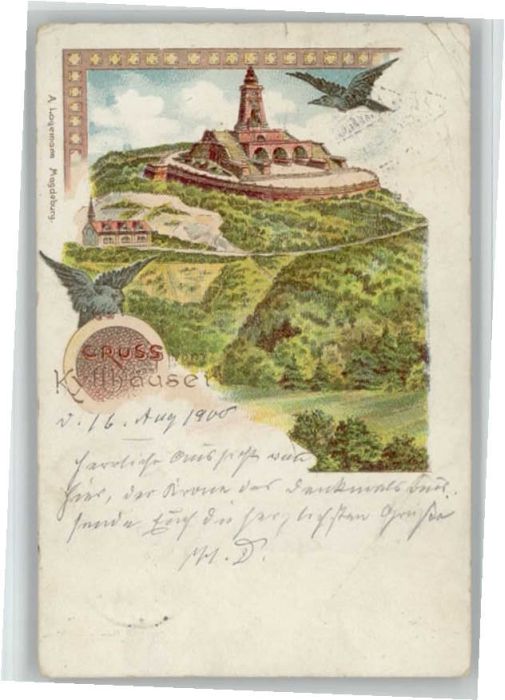 A. Lagemann Magdeburg.
GRUSS vom
Kyffhäuser
d. 16. Aug 1900
Herrliche Aussicht von
hier, der Krone des Denkmals
sende Euch die herzlichsten Grüße
M. D.